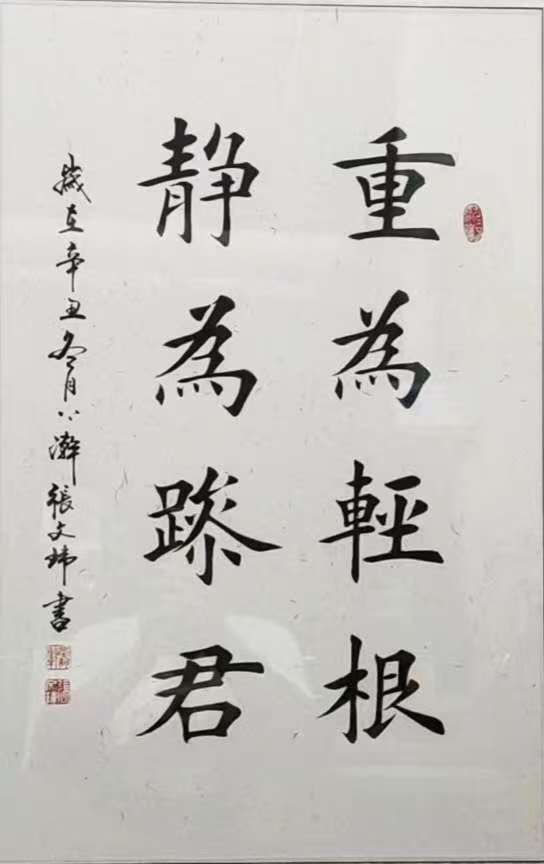 重為輕根
静為躁君
歲在辛丑冬月下澣張文玮書